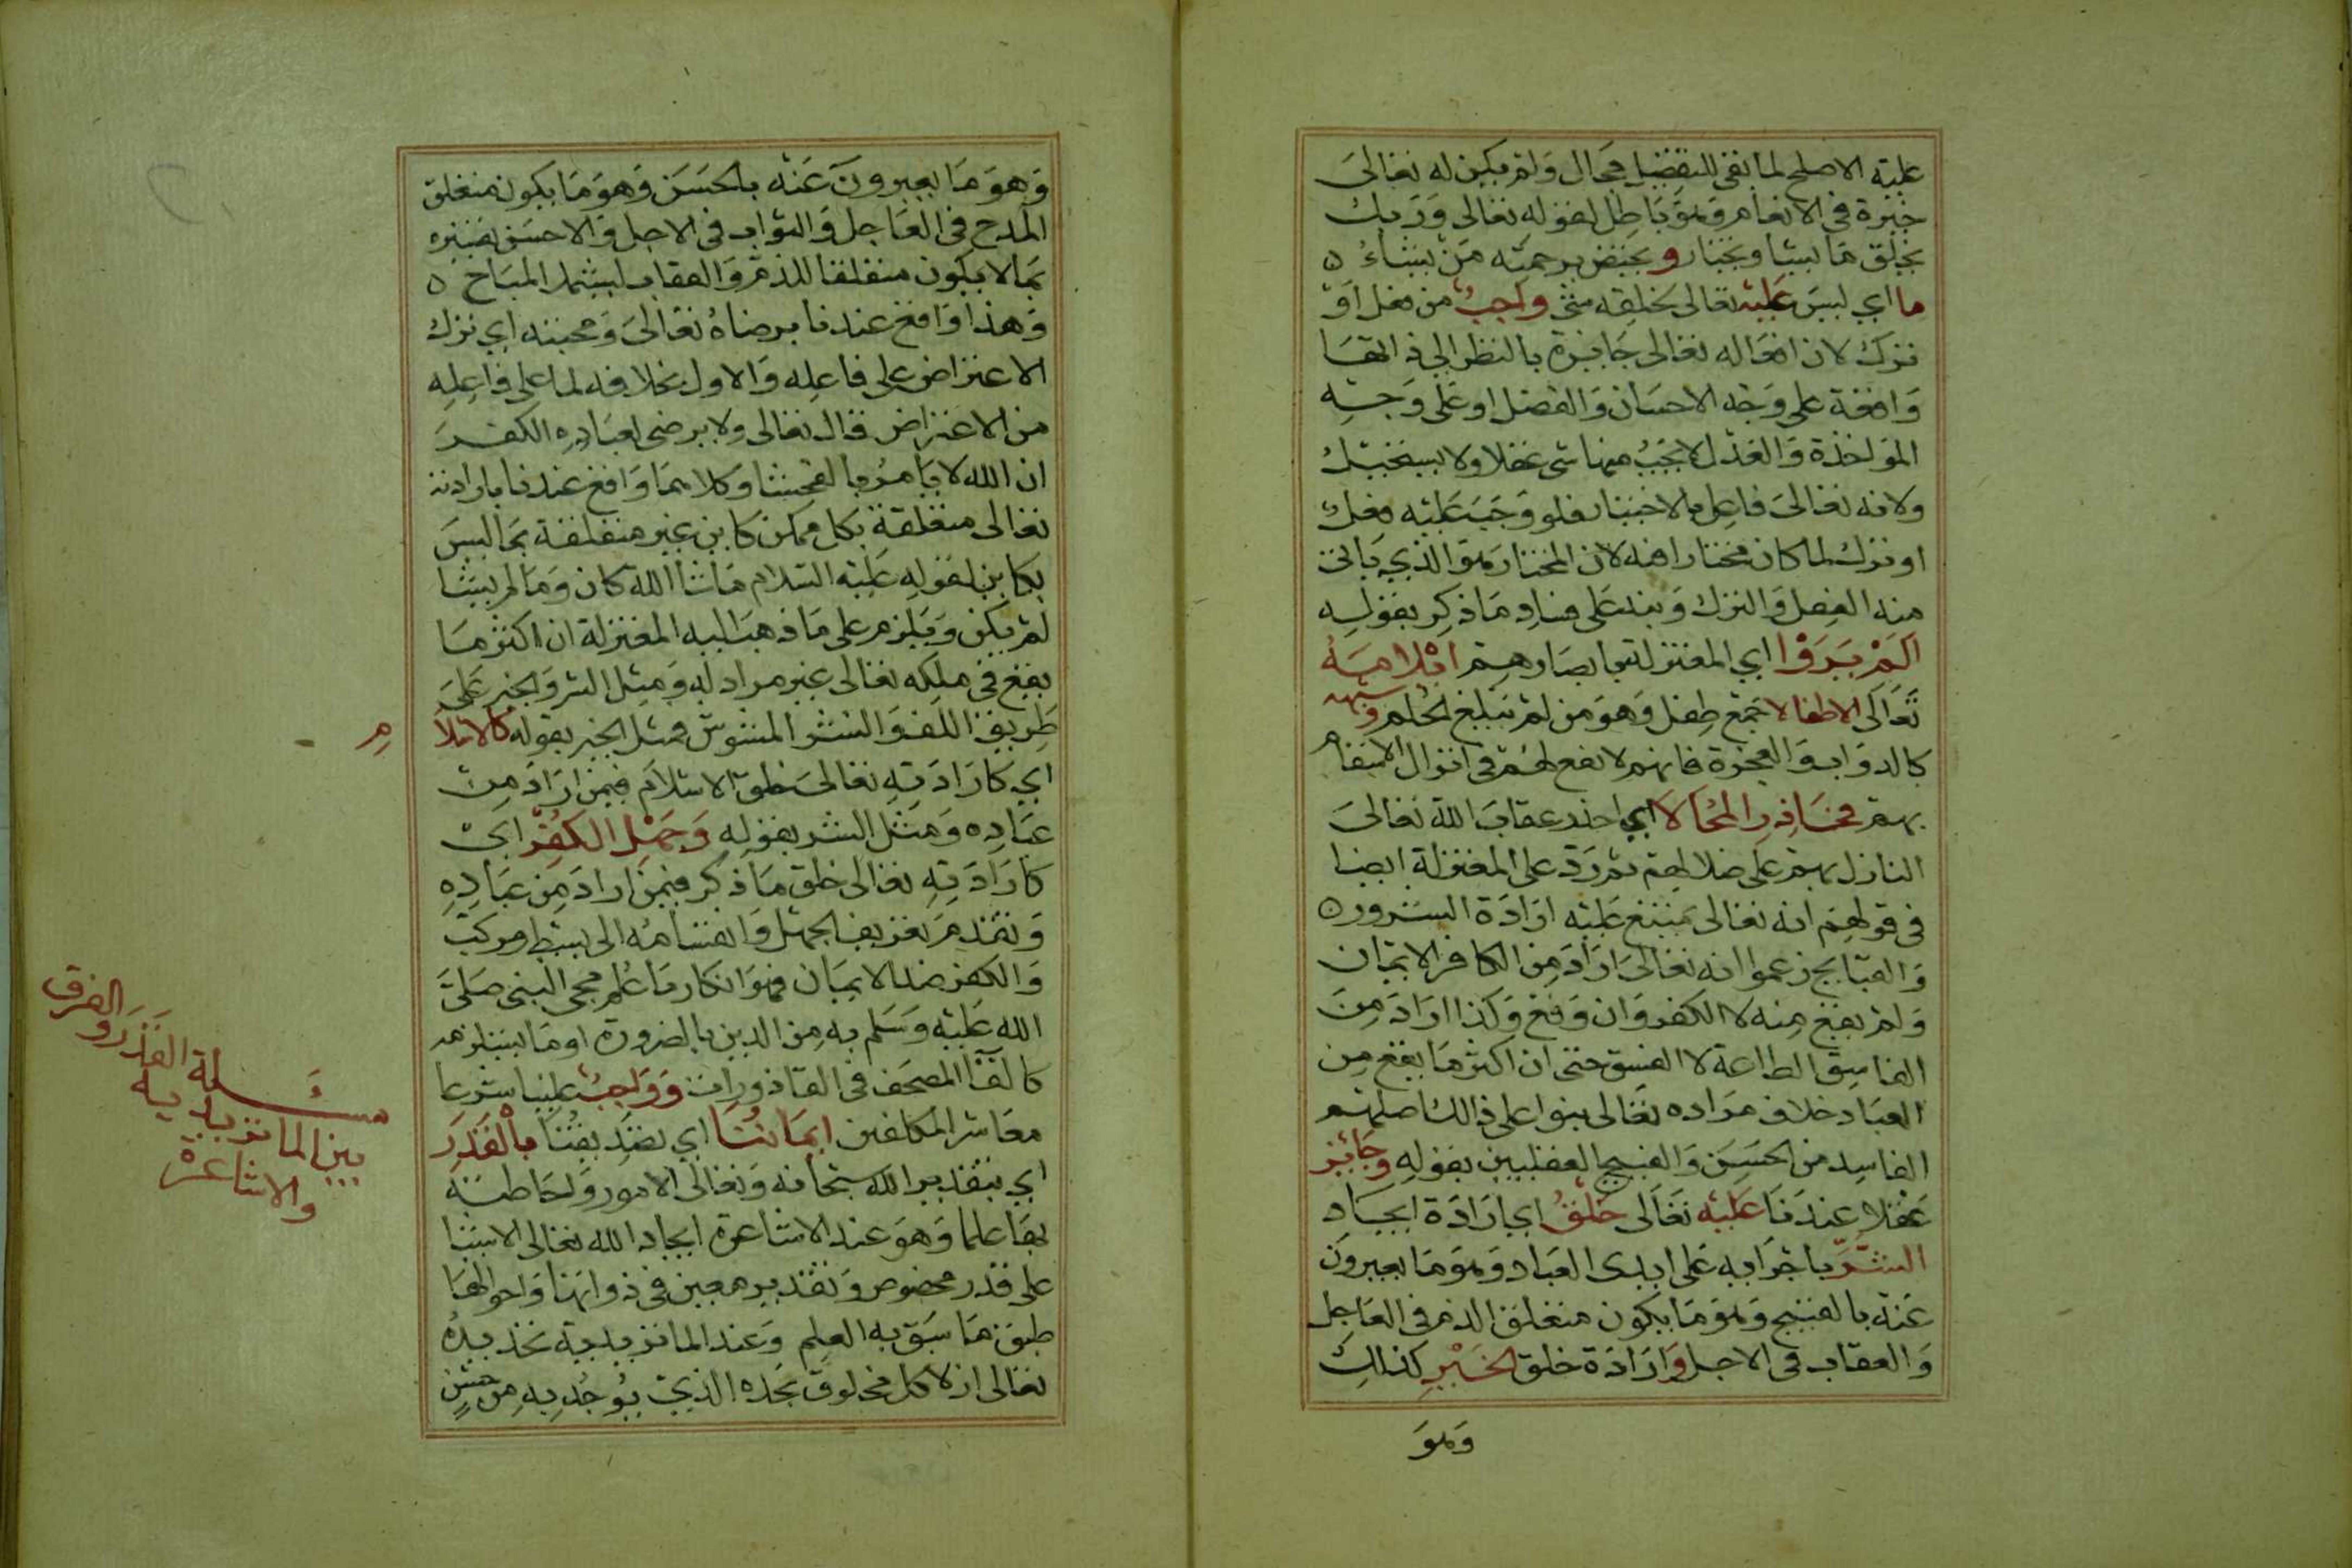 عليه الاصلح لما بقى للتفضل مجال ولم يكن له تعالى
خيرة في الانعام وهو باطل لقوله تعالى وربك
يخلق ما يشا ويختار و يختص برحمته من يشاء ه
ما اي ليس عليه تعالى لخلقه شئ واجب من فعل او
ترك لان افعاله تعالى جايزة بالنظر الي ذاتها
واقعة على وجه الاحسان والفضل او على وجه
المواخذة والعدل لا يجب منها شى عقلا ولا يستحيل
ولانه تعالى فاعل بالاختيار فلو وجب عليه فعل
او ترك لما كان مختارا فيه لان المختار هو الذي ياتى
منه الفعل والترك ونبه على فساد ما ذكر بقوله
الم يروا اي المعتزلة بابصارهم ايلامه
تعالى الاطفالا جمع طفل وهو من لم يبلغ الحلم وشبهه
كالدواب والعجزة فانهم لا نفع لهم في انزال الاسقام
بهم فحاذر المحالا اي احذر عقاب الله تعالى
النازل بهم على ضلالهم ثم رد على المعتزلة ايضا
في قولهم انه تعالى يمتنع عليه ارادة الشرور ه
والقبايح زعموا انه تعالى اراد من الكافر الايمان
ولم يقع منه لا الكفر وان وقع وكذا اراد من
الفاسق الطاعة لا الفسق حتى ان اكثر ما يقع من
العباد خلاف مراده تعالى بنوا على ذالك اصلهم
الفاسد من الحسن والقبح العقليين بقوله وجائز
عقلا عندنا عليه تعالى خلق اي ارادة ايجاد
الشر باجرايه على ايدى العباد وهو ما يعبرون
عنه بالقبيح وهو ما يكون متعلق الذم في العاجل
والعقاب في الاجل وارادة خلق الخير كذلك
وهو
وهو ما يعبرون عنه بالحسن وهو ما يكون متعلق
المدح في العاجل والثواب في الاجل والاحسن تفسيره
بما لا يكون متعلقا للذم والعقاب ليشمل المباح ه
وهذا واقع عندنا برضاه تعالى ومحبته اي ترك
الاعتراض على فاعله والاول بخلافه لما على فاعله
من الاعتراض قال تعالى ولا يرضى لعباده الكفر
ان الله لا يامر بالفحشا وكلاهما واقع عندنا بارادته
تعالى متعلقة بكل ممكن كاين غير متعلقة بما ليس
بكاين لقوله عليه السلام ما شا الله كان وما لم يشا
لم يكن ويلزم على ما ذهب اليه المعتزلة ان اكثر ما
يقع في ملكه تعالى غير مراد له ومثل الشر والخير على
طريق اللف والنشر المشوش فمثل الخير بقوله كالاسلا
م
اي كارادته تعالى خلق الاسلام فيمن اراد من
عباده ومثل الشر بقوله وجهل الكفر اي
كارادته تعالى خلق ما ذكر فيمن اراد من عباده
وتقدم تعريف الجهل وانقسامه الى بسيط ومركب
والكفر ضد الايمان فهو انكار ما علم مجى النبى صلى
الله عليه وسلم به من الدين بالضرورة او ما يستلزمه
كالقا المصحف في القاذورات وواجب علينا شرعا
معاشر المكلفين ايماننا اي تصديقنا بالقدر
اي بتقدير الله سبحانه وتعالى الامور واحاطته
بها علما وهو عند الاشاعرة ايجاد الله تعالى الاشيا
على قدر مخصوص وتقدير معين في ذواتها واحوالها
طبق ما سبق به العلم وعند الماتريدية تحديده
تعالى ازلا كل مخلوق بحده الذي يوجد به من حسن
مسئلة القدر والفرق
بين الماتريديه
والاشاعرة